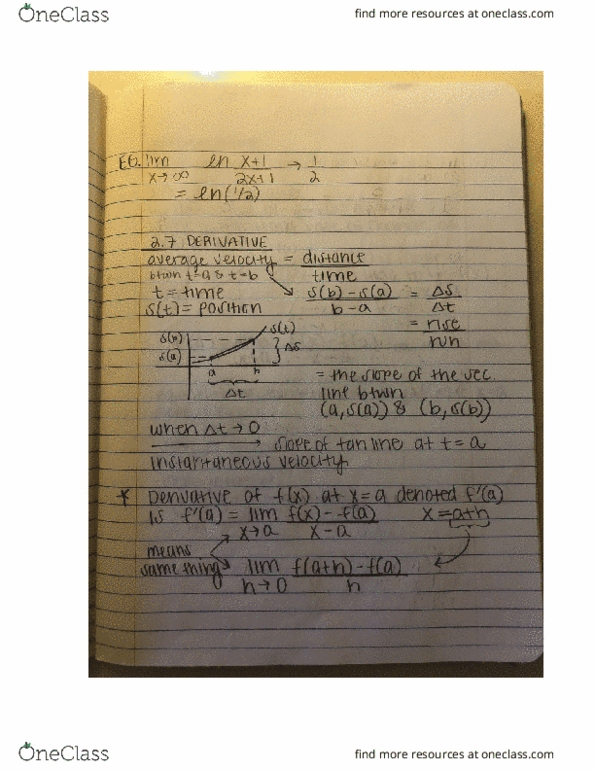 OneClass find more resources at oneclass.com
EG. lim ln x+1 → 1
x→∞ 2x+1 2
= ln(1/2)
2.7 DERIVATIVE
average velocity = distance
btwn t=a & t=b time
t = time s(b)-s(a) = Δs
s(t) = position b-a Δt
= rise
run
s(b) s(t)
s(a) Δs
a b
Δt
= the slope of the sec.
line btwn
(a,s(a)) & (b,s(b))
when Δt→0
slope of tan line at t=a
instantaneous velocity
* Derivative of f(x) at x=a denoted f'(a)
is f'(a) = lim f(x)-f(a) x=a+h
x→a x-a
means
same thing lim f(a+h)-f(a)
h→0 h
OneClass find more resources at oneclass.com